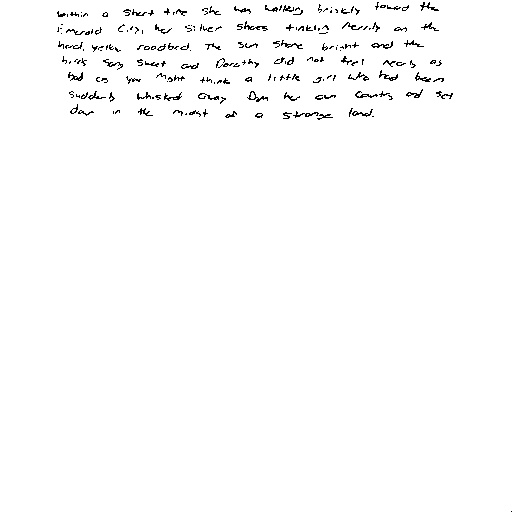 within a short time she was walking briskly toward the
Emerald City, her silver shoes tinkling merrily on the
hard, yellow roadbed. The sun shone bright and the
birds sang sweet and Dorothy did not feel nearly as
bad as you might think a little girl who had been
suddenly whisked away from her own country and set
down in the midst of a strange land.